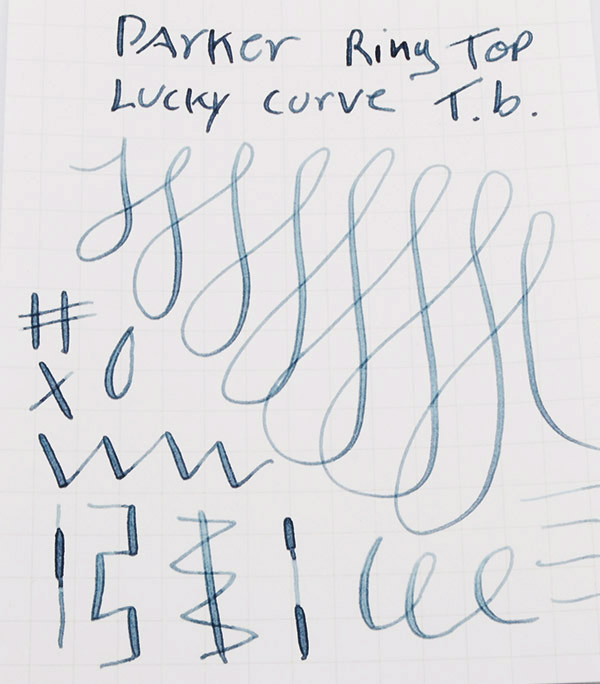 Parker Ring Top
Lucky Curve T.b.
# 
x 0